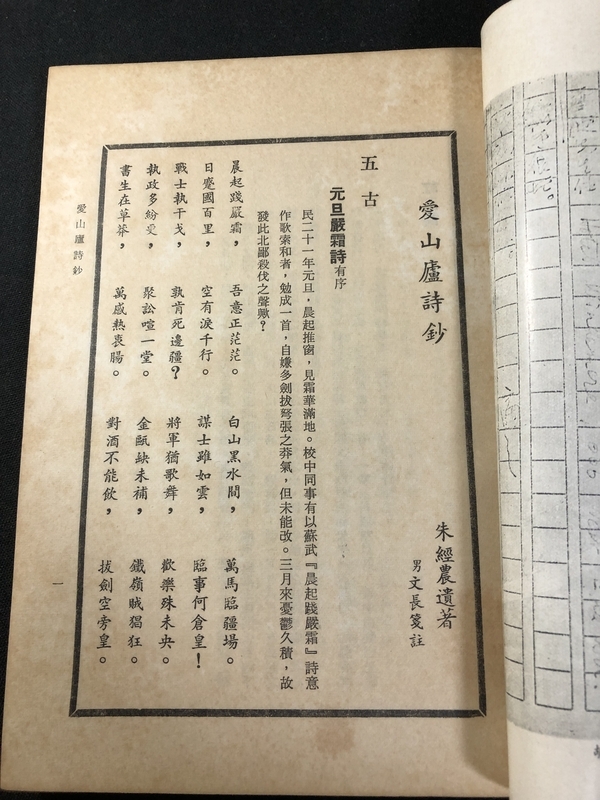 愛山廬詩鈔
朱經農遺著
男文長箋註
五古
元旦嚴霜詩有序
民二十一年元旦，晨起推窗，見霜華滿地。校中同事有以蘇武『晨起踐嚴霜』詩意
作歌索和者，勉成一首，自嫌多劍拔弩張之莽氣，但未能改。三月來憂鬱久積，故
發此北鄙殺伐之聲歟？
晨起踐嚴霜，吾意正茫茫。白山黑水間，萬馬臨疆場。
日蹙國百里，空有淚千行。謀士雖如雲，臨事何倉皇！
戰士執干戈，孰肯死邊疆？將軍猶歌舞，歡樂殊未央。
執政多紛爭，聚訟喧一堂。金甌缺未補，鐵嶺賊猖狂。
書生在草莽，萬感熱衷腸。對酒不能飲，拔劍空旁皇。
愛山廬詩鈔
一